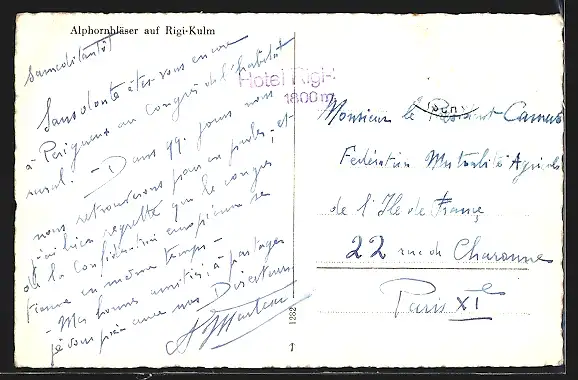 Alphornbläser auf Rigi-Kulm
Samedi tantôt
Sans doute êtes-vous encore
à Périgueux au Congrès de l'habitat
rural. - Dans qq. jours nous
nous retrouverons pour en parler, et
j'ai bien regretté que le congrès
de la Confédération européenne se
tienne en même temps -
- Mes bonnes amitiés, à partager
je vous prie avec nos Directeurs
Hotel Rigi-
1800 m
Monsieur le Président Camus
Fédération Mutualité Agricole
de l'Ile de France
22 rue de Charonne
Paris XIe
1282